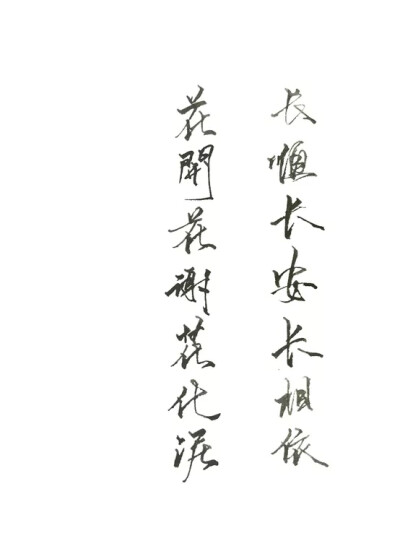 长恤长安长相依
花開花谢花化泥